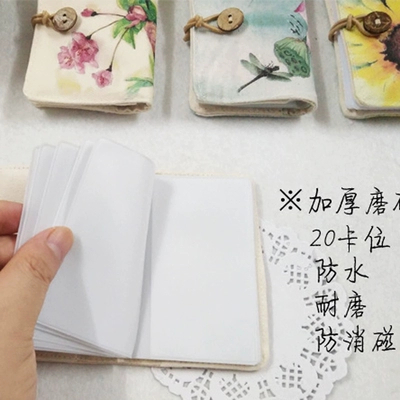 ※加厚磨砂
20卡位
防水
耐磨
防消磁